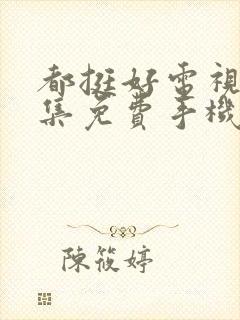 都挺好電視
集免費手機
陳筱婷